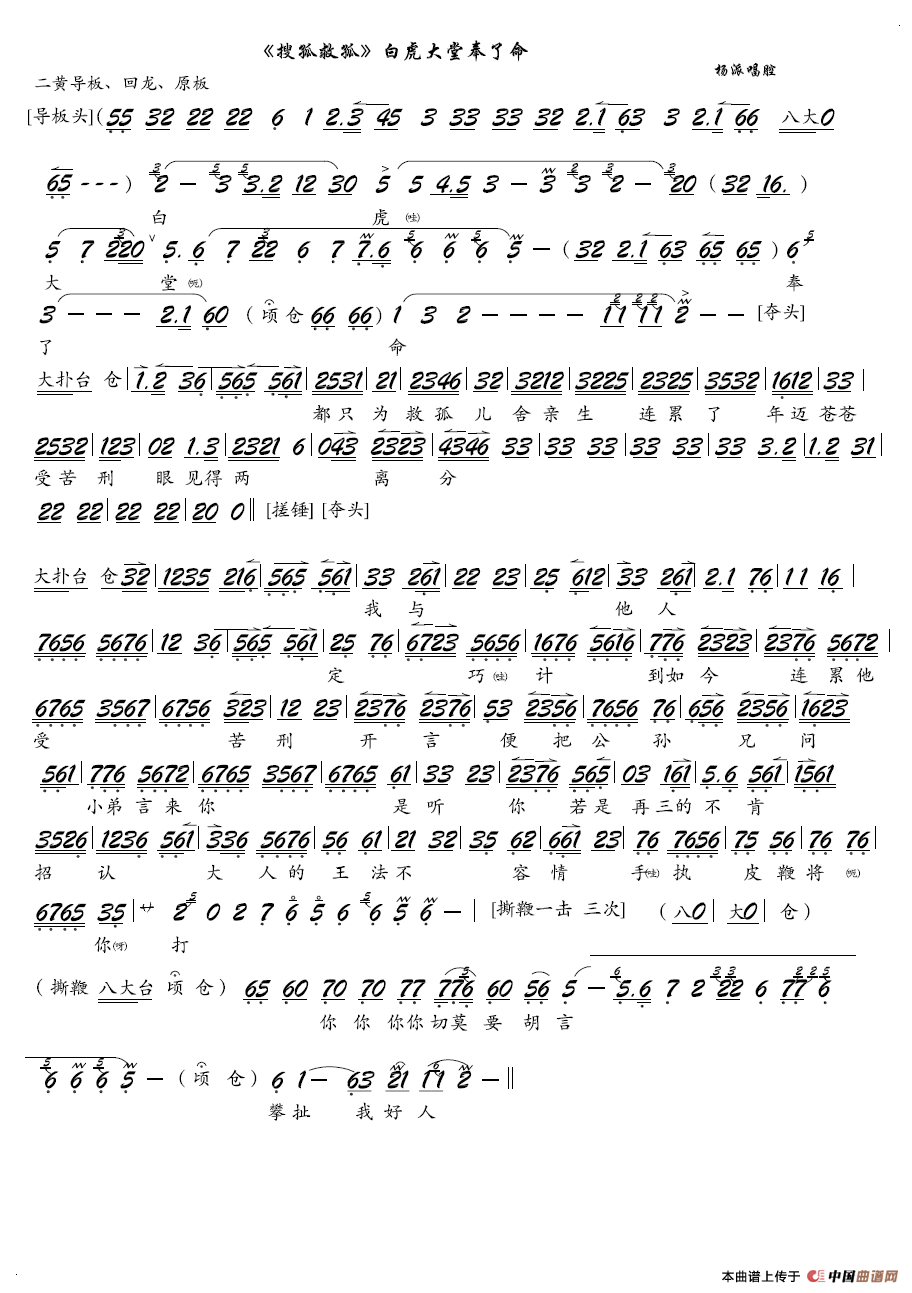 《搜孤救孤》白虎大堂奉了命
杨派唱腔
二黄导板、回龙、原板
[导板头](55 32 22 22 6 1 2.3 45 3 33 33 32 2.1 63 3 2.1 66 八大0
65 - - - ) 2 - 3 3.2 12 30 5 5 4.5 3 - 3 3 2 - 20 (32 16. )
白 虎(哇)
5 7 220 5. 6 7 22 6 7 7.6 6 6 6 5 - (32 2.1 63 65 65) 6
大 堂(呃) 奉
3 - - - 2.1 60 (顷仓 66 66) 1 3 2 - - - - 11 11 2 - - [夺头]
了 命
大扑台 仓|1.2 36|565 561|2531|21|2346|32|3212|3225|2325|3532|1612|33|
都只为救孤儿舍亲生 连累了 年迈苍苍
2532|123|02 1.3|2321 6|043 2323|4346 33|33 33|33 33|33 3.2|1.2 31|
受苦刑 眼见得两 离 分
22 22|22 22|20 0‖[搓锤] [夺头]
大扑台 仓 32|1235 216|565 561|33 261|22 23|25 612|33 261|2.1 76|11 16|
我 与 他 人
7656 5676|12 36|565 561|25 76|6723 5656|1676 5616|776 2323|2376 5672|
定 巧(哇)计 到如今 连累他
6765 3567|6756 323|12 23|2376 2376|53 2356|7656 76|656 2356|1623
受 苦刑 开言 便把公孙 兄问
561|776 5672|6765 3567|6765 61|33 23|2376 565|03 161|5.6 561|1561
小弟言来你 是听 你 若是再三的不肯
3526|1236 561|336 5676|56 61|21 32|35 62|661 23|76 7656|75 56|76 76|
招 认 大人的王法不 容情 手(哇)执 皮鞭将(呃)
6765 35|艹 2 0 2 7 6 5 6 6 5 6 -|[撕鞭一击 三次] (八0|大0|仓)
你(呀) 打
(撕鞭 八大台 顷 仓) 65 60 70 70 77 776 60 56 5 - 5.6 7 2 22 6 77 6
你你你你切莫要胡言
6 6 6 5 - (顷 仓) 6 1- 63 21 11 2 -‖
攀扯 我好人
本曲谱上传于 中国曲谱网